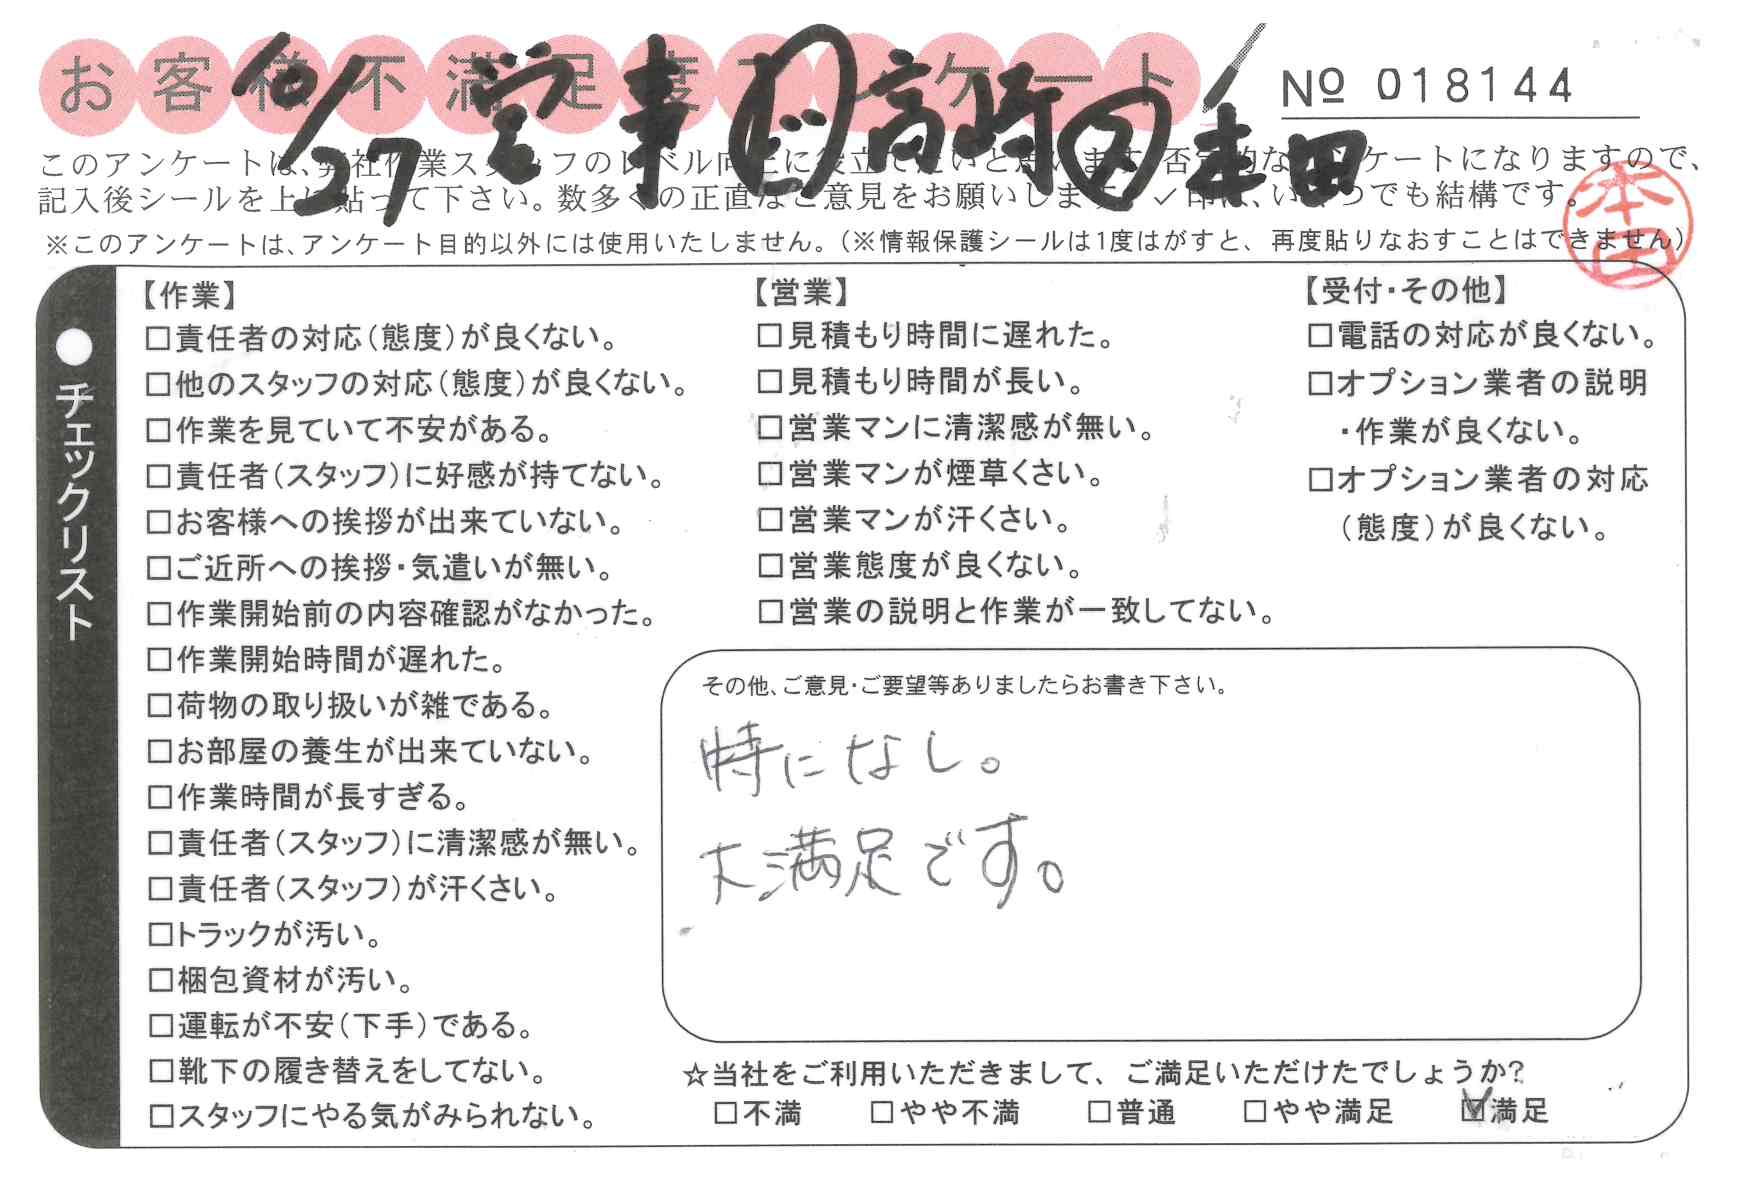 お客様不満足度アンケート
№ 018144
10/27 営事 高崎 本田
このアンケートは、弊社作業スタッフのレベル向上に役立てたいと思います。否定的なアンケートになりますので、
記入後シールを上に貼って下さい。数多くの正直なご意見をお願いします。✓印は、いくつでも結構です。
本田
※このアンケートは、アンケート目的以外には使用いたしません。(※情報保護シールは1度はがすと、再度貼りなおすことはできません)
●チェックリスト
【作業】
□責任者の対応(態度)が良くない。
□他のスタッフの対応(態度)が良くない。
□作業を見ていて不安がある。
□責任者(スタッフ)に好感が持てない。
□お客様への挨拶が出来ていない。
□ご近所への挨拶・気遣いが無い。
□作業開始前の内容確認がなかった。
□作業開始時間が遅れた。
□荷物の取り扱いが雑である。
□お部屋の養生が出来ていない。
□作業時間が長すぎる。
□責任者(スタッフ)に清潔感が無い。
□責任者(スタッフ)が汗くさい。
□トラックが汚い。
□梱包資材が汚い。
□運転が不安(下手)である。
□靴下の履き替えをしてない。
□スタッフにやる気がみられない。
【営業】
□見積もり時間に遅れた。
□見積もり時間が長い。
□営業マンに清潔感が無い。
□営業マンが煙草くさい。
□営業マンが汗くさい。
□営業態度が良くない。
□営業の説明と作業が一致してない。
【受付・その他】
□電話の対応が良くない。
□オプション業者の説明
・作業が良くない。
□オプション業者の対応
(態度)が良くない。
その他、ご意見・ご要望等ありましたらお書き下さい。
特になし。
大満足です。
☆当社をご利用いただきまして、ご満足いただけたでしょうか?
□不満 □やや不満 □普通 □やや満足 ☑満足